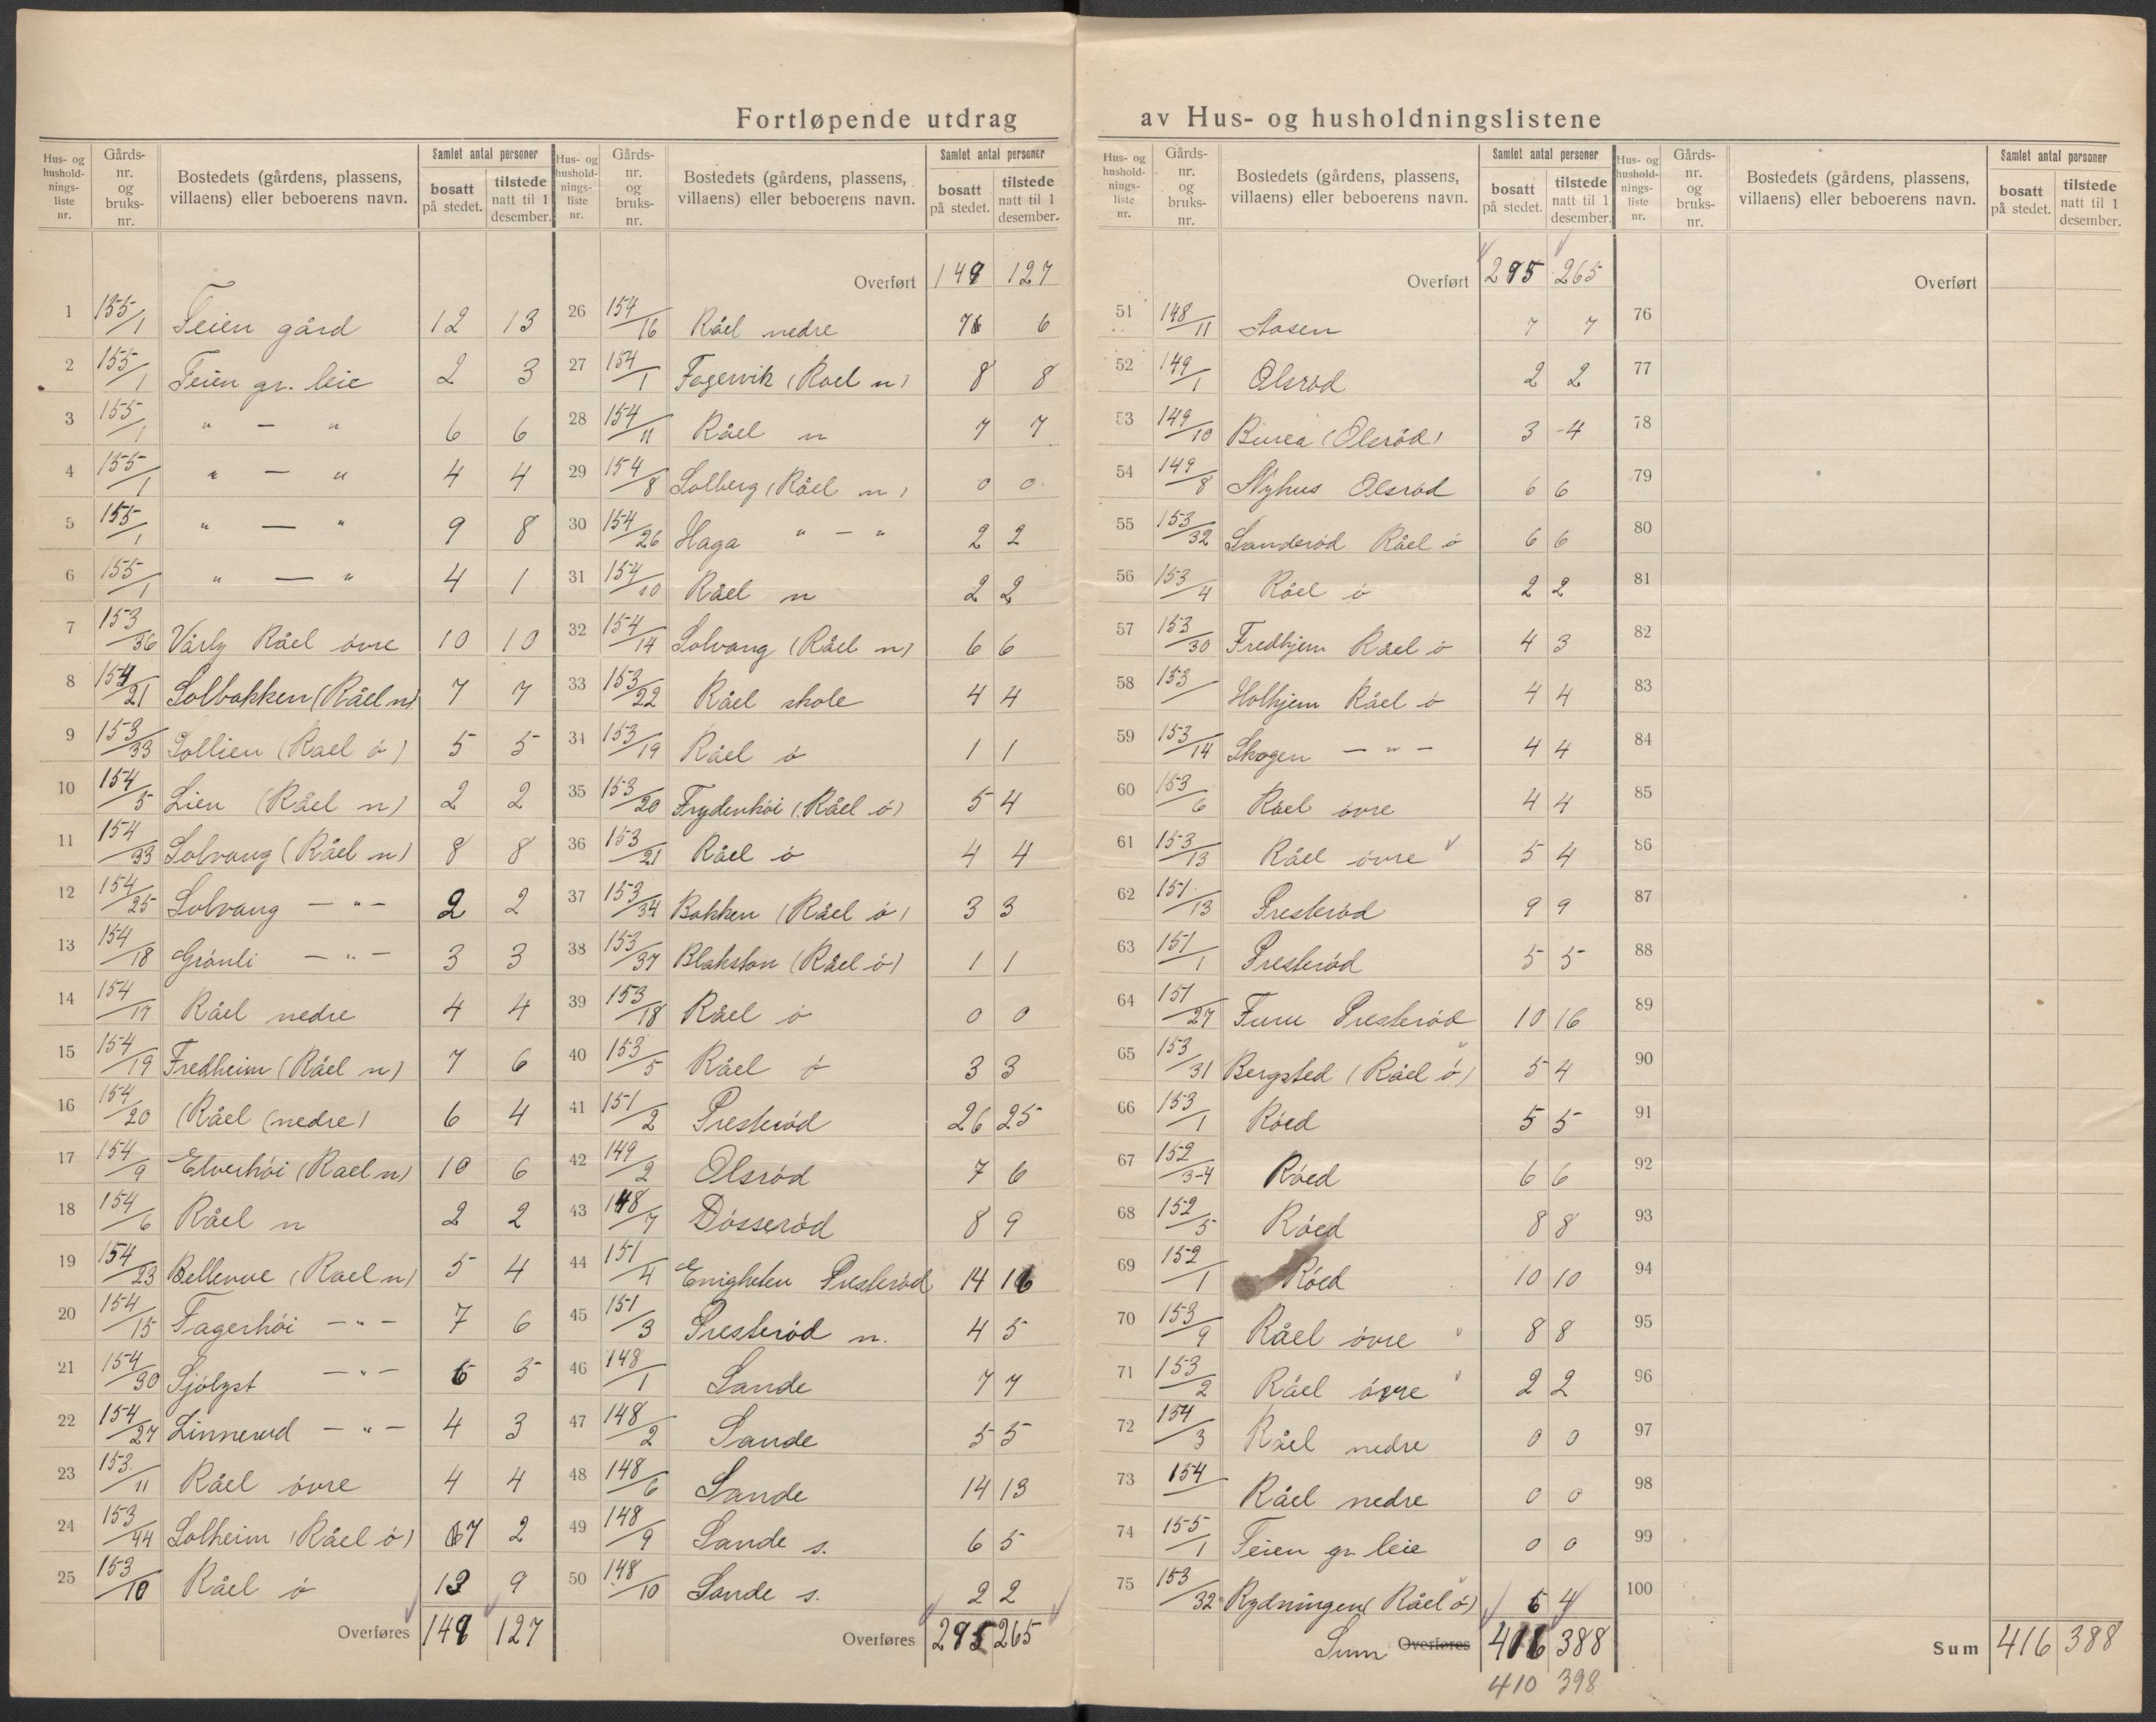 Fortløpende utdrag av Hus- og husholdningslistene
Hus- og husholdnings-liste nr. | Gårds-nr. og bruks-nr. | Bostedets (gårdens, plassens, villaens) eller beboerens navn. | Samlet antal personer: bosatt på stedet. | tilstede natt til 1 desember.
1 155/1 Teien gård 12 13
2 155/1 Teien gr. leie 2 3
3 155/1 " — " 6 6
4 155/1 " — " 4 4
5 155/1 " — " 9 8
6 155/1 " — " 4 1
7 153/36 Vårly Råel övre 10 10
8 154/21 Solbakken (Råel n) 7 7
9 153/33 Sollien (Rael ö) 5 5
10 154/5 Lien (Råel n) 2 2
11 154/33 Solvang (Råel n) 8 8
12 154/25 Solvang — " — 2 2
13 154/18 Grönli — " — 3 3
14 154/17 Råel nedre 4 4
15 154/19 Fredheim (Råel n) 7 6
16 154/20 (Råel (nedre) 6 4
17 154/9 Elverhöi (Rael n) 10 6
18 154/6 Råel n 2 2
19 154/23 Bellevue (Rael n) 5 4
20 154/15 Fagerhöi — " — 7 6
21 154/30 Sjölyst — " — 5
22 154/27 Linnerud — " — 4 3
23 153/11 Råel övre 4 4
24 153/44 Solheim (Råel ö) 7 2
25 153/10 Råel ö 13 9
Overføres 149 127
Hus- og husholdnings-liste nr. | Gårds-nr. og bruks-nr. | Bostedets (gårdens, plassens, villaens) eller beboerens navn. | Samlet antal personer: bosatt på stedet. | tilstede natt til 1 desember.
Overført 149 127
26 154/16 Råel nedre 7 6
27 154/1 Fagervik (Rael n) 8 8
28 154/11 Råel n 7 7
29 154/8 Solberg (Råel n) 0 0
30 154/26 Haga " — " 2 2
31 154/10 Råel n 2 2
32 154/14 Solvang (Råel n) 6 6
33 153/22 Råel skole 4 4
34 153/19 Råel ö 1 1
35 153/20 Frydenhöi (Råel ö) 5 4
36 153/21 Råel ö 4 4
37 153/34 Bakken (Råel ö) 3 3
38 153/37 Blakston (Råel ö) 1 1
39 153/18 Råel ö 0 0
40 153/5 Råel ö 3 3
41 151/2 Presteröd 26 25
42 149/2 Olsröd 7 6
43 148/7 Dösseröd 8 9
44 151/4 Enigheten Presteröd 14 16
45 151/3 Presteröd n. 4 5
46 148/1 Sande 7 7
47 148/2 Sande 5 5
48 148/6 Sande 14 13
49 148/9 Sande s. 6 5
50 148/10 Sande s. 2 2
Overføres 295 265
Hus- og husholdnings-liste nr. | Gårds-nr. og bruks-nr. | Bostedets (gårdens, plassens, villaens) eller beboerens navn. | Samlet antal personer: bosatt på stedet. | tilstede natt til 1 desember.
Overført 295 265
51 148/11 Aasen 7 7
52 149/1 Olsröd 2 2
53 149/10 Burea (Olsröd) 3 4
54 149/8 Nyhus Olsröd 6 6
55 153/32 Sanderöd Råel ö 6 6
56 153/4 Råel ö 2 2
57 153/30 Fredhjem Råel ö 4 3
58 153/ Holhjem Råel ö 4 4
59 153/14 Skogen — " — 4 4
60 153/6 Råel övre 4 4
61 153/13 Råel övre 5 4
62 151/13 Presteröd 9 9
63 151/1 Presteröd 5 5
64 151/27 Furu Presteröd 10 16
65 153/31 Bergsted (Råel ö) 5 4
66 153/1 Röed 5 5
67 152/3-4 Röed 6 6
68 152/5 Röed 8 8
69 152/1 Röed 10 10
70 153/9 Råel övre 8 8
71 153/2 Råel övre 2 2
72 154/3 Råel nedre 0 0
73 154 Råel nedre 0 0
74 155/1 Teien gr. leie 0 0
75 153/32 Rydningen (Råel ö) 4
Sum Overføres 416 388
410 398
Hus- og husholdnings-liste nr. | Gårds-nr. og bruks-nr. | Bostedets (gårdens, plassens, villaens) eller beboerens navn. | Samlet antal personer: bosatt på stedet. | tilstede natt til 1 desember.
Overført
76
77
78
79
80
81
82
83
84
85
86
87
88
89
90
91
92
93
94
95
96
97
98
99
100
Sum 416 388